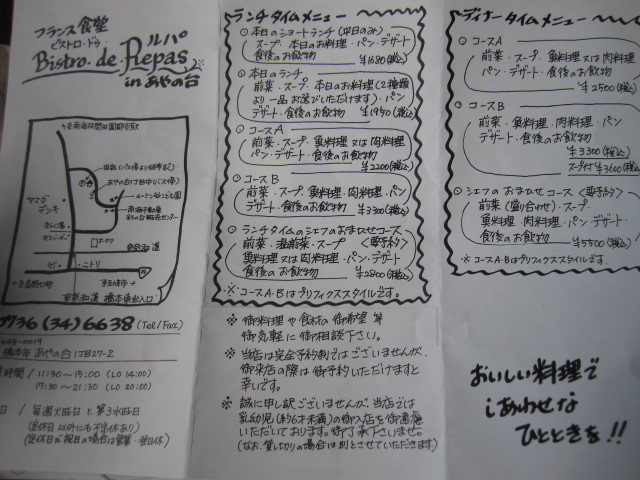 フランス食堂
ビストロ・ドゥ ルパ
Bistro de Repas
in あやの台
至南海林間田園都市駅
当店
あやの台1丁目中(バス停)
ヤマダ
デンキ
オークワ
京奈和道
ニトリ
至橋本市
京奈和道 橋本東出入口
0736 (34) 6638 (Tel/Fax)
648-0019
橋本市あやの台1丁目27-2
時間 / 11:30~15:00 (LO 14:00)
17:30~21:30 (LO 20:00)
日 / 毎週火曜日と第3水曜日
(定休日以外にも不定休あり)
(定休日が祝日の場合は営業・翌日休)
ランチタイムメニュー
○ 本日のショートランチ (平日のみ)
スープ・本日のお料理・パン・デザート
食後のお飲物 ¥1680(税込)
○ 本日のランチ
前菜・スープ・本日のお料理(2種類
より一品お選びいただけます)・パン
デザート・食後のお飲物 ¥1950(税込)
○ コースA
前菜・スープ・魚料理又は肉料理
パン・デザート・食後のお飲物
¥2200(税込)
○ コースB
前菜・スープ・魚料理・肉料理・パン
デザート・食後のお飲物 ¥3300(税込)
○ ランチタイムのシェフのおまかせコース
前菜・温前菜・スープ <要予約>
魚料理又は肉料理・パン・デザート
食後のお飲物 ¥2800(税込)
※ コースA・Bはプリフィクススタイルです。
※ 御料理や食材の御希望等
御気軽に御相談下さい。
※ 当店は完全予約制ではございませんが、
御来店の際は御予約いただけますと
幸いです。
※ 誠に申し訳ございませんが、当店では
乳幼児(約6才未満)の御入店を御遠慮
いただいております。御了承下さいませ。
(なお、貸し切りの場合は別とさせていただきます)
ディナータイムメニュー
○ コースA
前菜・スープ・魚料理又は肉料理
パン・デザート・食後のお飲物
¥2500(税込)
○ コースB
前菜・魚料理・肉料理・パン
デザート・食後のお飲物
¥3300(税込)
スープ付 ¥3600(税込)
○ シェフのおまかせコース <要予約>
前菜(盛り合わせ)・スープ・
魚料理・肉料理・パン・デザート・
食後のお飲物 ¥5500(税込)
※ コースA・Bはプリフィクススタイルです。
おいしい料理で
しあわせな
ひとときを!!